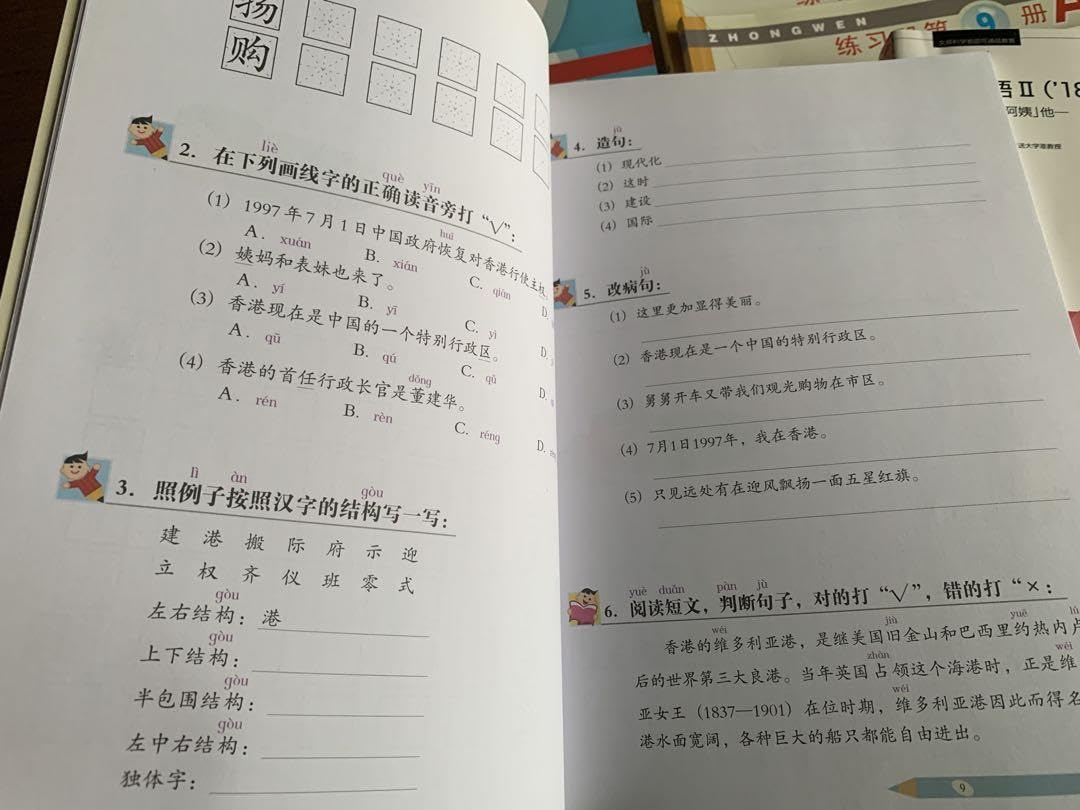 物
购
liè
què yīn
2. 在下列画线字的正确读音旁打“√”:
huī
(1) 1997年7月1日中国政府恢复对香港行使主权
A. xuán B. xián C. qián D.
(2) 姨妈和表妹也来了。
A. yí B. yī C. yì D.
(3) 香港现在是中国的一个特别行政区。
A. qū B. qú C. qǔ D.
dǒng
(4) 香港的首任行政长官是董建华。
A. rén B. rèn C. réng D.
lì àn gòu
3. 照例子按照汉字的结构写一写:
建 港 搬 际 府 示 迎
立 权 齐 仪 班 零 式
gòu
左右结构: 港
gòu
上下结构:
gòu
半包围结构:
gòu
左中右结构:
独体字:
jù
4. 造句:
(1) 现代化
(2) 这时
(3) 建设
(4) 国际
jù
5. 改病句:
(1) 这里更加显得美丽。
(2) 香港现在是一个中国的特别行政区。
(3) 舅舅开车又带我们观光购物在市区。
(4) 7月1日1997年,我在香港。
(5) 只见远处有在迎风飘扬一面五星红旗。
yuè duǎn pàn jù
6. 阅读短文,判断句子,对的打“√”,错的打“×:
wéi jiù yuē lú
香港的维多利亚港,是继美国旧金山和巴西里约热内卢
zhàn wéi
后的世界第三大良港。当年英国占领这个海港时,正是维
wéi
亚女王(1837—1901)在位时期,维多利亚港因此而得名
港水面宽阔,各种巨大的船只都能自由进出。
9
ZHONGWEN
练习册
9
册
语 II ('18
阿姨」他一